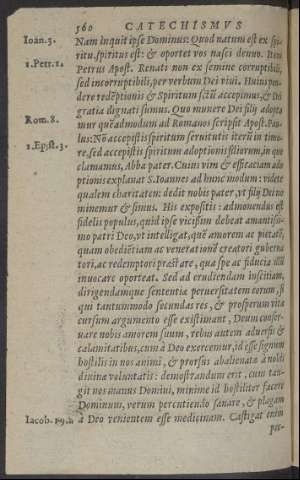 560 CATECHISMVS
Ioan. 3. Nam inquit ipse Dominus: Quod natum est ex spi-
ritu, spiritus est: & oportet vos nasci denuo. Item
1. Petr. 1. Petrus Apost. Renati non ex semine corruptibili,
sed incorruptibili, per verbum Dei viui. Huius pon-
dere redẽptionis & Spiritum sctũ accepimus, & Dei
gratia dignati sumus. Quo munere Dei filij adopta
Rom. 8. mur quẽadmodum ad Romanos scripsit Apost. Pau-
lus: Nõ accepistis spiritum seruitutis iterũ in timo-
1. Epist. 3. re, sed accepistis spiritum adoptionis filiorum, in quo
clamamus, Abba pater. Cuius vim & efficaciam ado
ptionis explanat S. Ioannes ad hunc modum: videte
qualem charitatem dedit nobis pater, vt filij Dei no
minemur & simus. His expositis: admonendus est
fidelis populus, quid ipse vicissim debeat amantissi-
mo patri Deo, vt intelligat, quẽ amorem ac pietatẽ,
quam obediẽtiam ac venerationẽ creatori guberna
tori, ac redemptori præstare, qua spe ac fiducia illũ
inuocare oporteat. Sed ad erudiendam inscitiam,
dirigendamque sententiæ peruersitatem eorum, si
qui tantummodo secundas res, & prosperum vitæ
cursum argumento esse existimant, Deum conser-
uare nobis amorem suum, rebus autem aduersis &
calamitatibus, cum à Deo exercemur, id esse signum
hostilis in nos animi, & prorsus abalienatæ à nobis
diuinæ voluntatis: demonstrandum erit, cum tan-
git nos manus Domini, minime id hostiliter facere
Dominum, verum percutiendo sanare, & plagam
Iacob. 19. à Deo venientem esse medicinam. Castigat enim
pec-